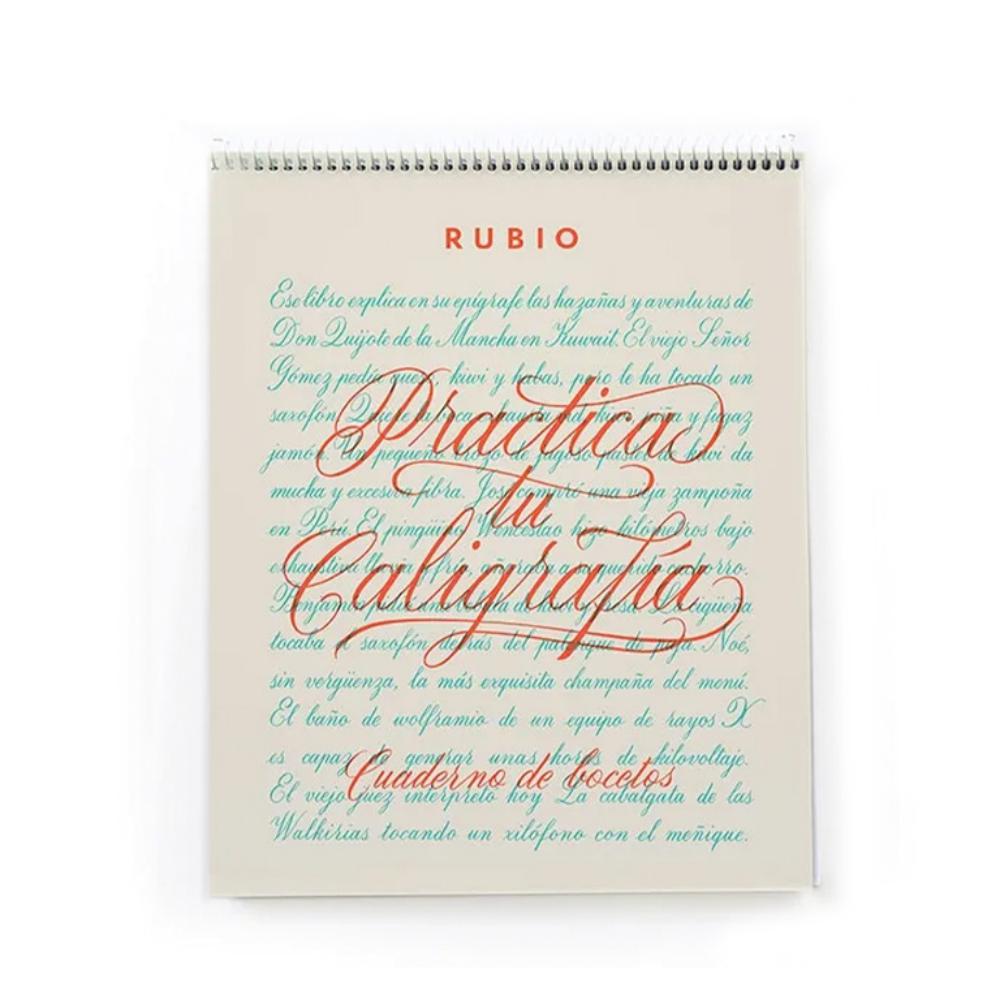 RUBIO
Ese libro explica en su epígrafe las hazañas y aventuras de
Don Quijote de la Mancha en Kuwait. El viejo Señor
Gómez pedía queso, kiwi y habas, pero le ha tocado un
saxofón
Practica
y fugaz
jamón. Un pequeño trozo de jugoso kiwi da
mucha y excesiva fibra. José compró una vieja zampoña
tu
en Perú. El pingüino Wenceslao hizo kilómetros bajo
exhaustiva lluvia y frío, añoraba a su querido cachorro.
Caligrafía
Benjamín pidió una de La cigüeña
tocaba el saxofón detrás del palenque de paja. Noé,
sin vergüenza, la más exquisita champaña del menú.
El baño de wolframio de un equipo de rayos X
es capaz de genrar unas horas de kilovoltaje.
Cuaderno de bocetos
El viejo juez interpretó hoy La cabalgata de las
Walkirias tocando un xilófono con el meñique.